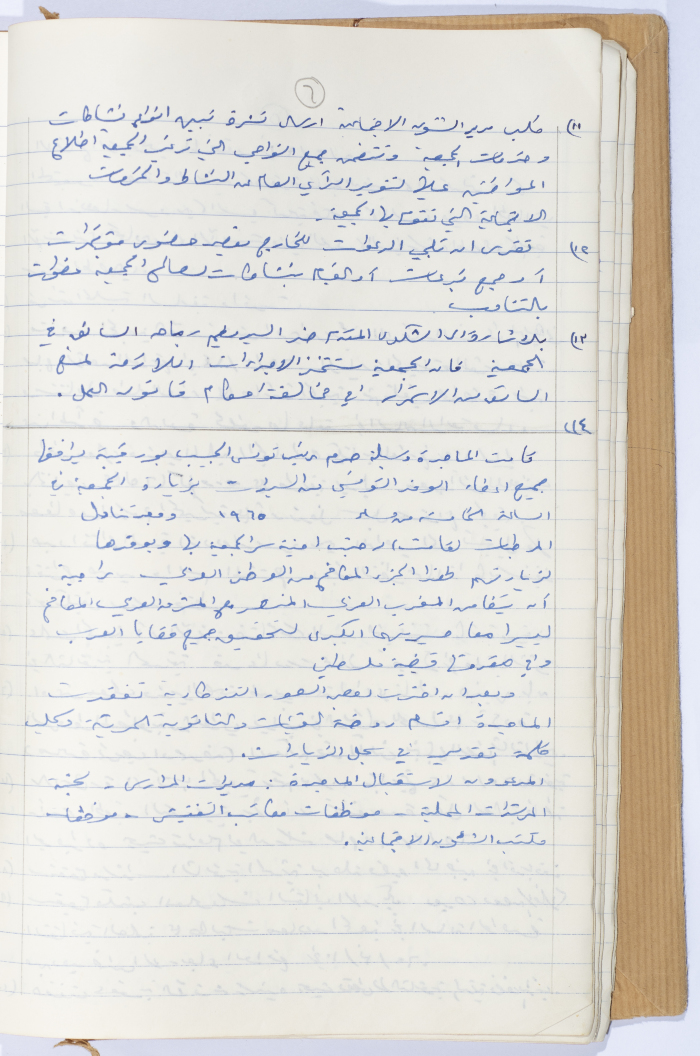 ٦
(١١ طلب مدير الشئون الاجتماعية ارسال نشرة تبين انواع نشاطات
وخدمات الجمعية وتتضمن جميع النواحي التي ترغب الجمعية اطلاع
المواطنين عليها لتنوير الرأي العام عن النشاط والخدمات
الاجتماعية التي تقوم بها الجمعية.
(١٢ تقرر ان تلبي الدعوات للخارج بقصد حضور مؤتمرات
أو جمع تبرعات أو القيام بنشاطات لصالح الجمعية عضوات
بالتناوب
(١٣ بالاشارة الى الشكوى المقدم ضد السيد سائق في
الجمعية فان الجمعية ستتخذ الاجراءات اللازمة لمنع
السائق من الاستمرار في مخالفة احكام قانون العمل.
(١٤
قامت الماجدة وسيلة حرم رئيس تونس الحبيب بورقيبة يرافقها
جميع اعضاء الوفد التونسي من السيدات بزيارة الجمعية في
الساعة الخامسة من مساء ١٩٦٥ وبعد تناول
المرطبات رحبت امينة سر الجمعية بها وبوفدها
لزيارتهم لهذا الجزء المكافح من الوطن العربي راجية
أن يتضامن المغرب العربي مع المشرق العربي المكافح
ليسيرا معا مسيرتهما الكبرى لتحقيق جميع قضايا العرب
وفي مقدمتها قضية فلسطين
وبعد ان اخذت بعض الصور التذكارية تفقدت
الماجدة اقسام روضة الفتيات والثانوية المهنية وسجلت
كلمة تقدير في سجل الزيارات.
المدعوون لاستقبال الماجدة: مديرات المدارس - لجنة
المرشدات المحلية - موظفات مكاتب التفتيش - موظفات
مكتب الشئون الاجتماعية.